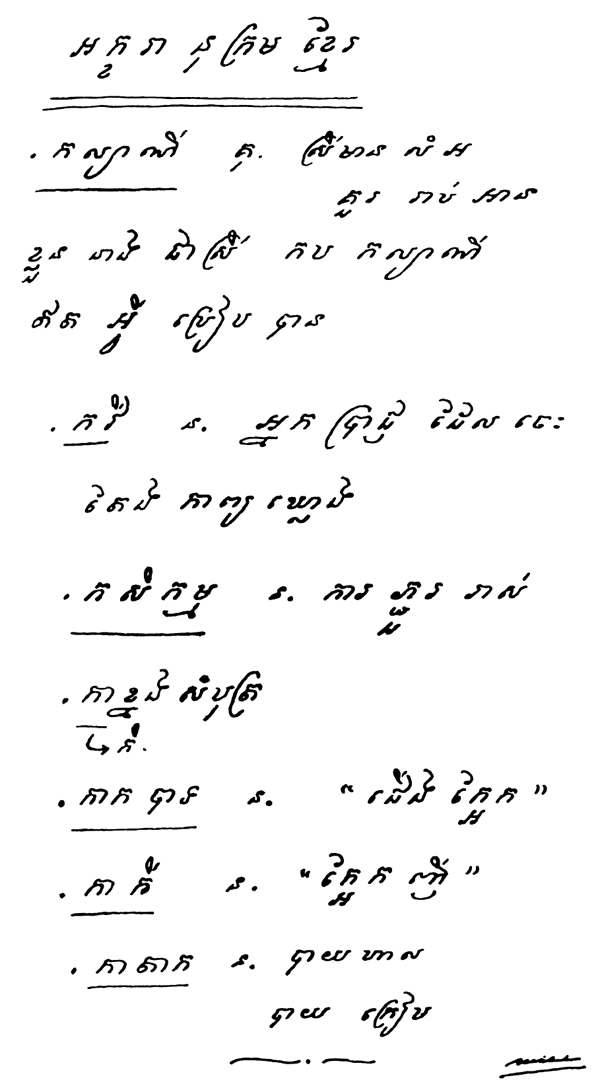 អក្ខរានុក្រមខ្មែរ
. កល្យាណី គុ. ស្រីមានលំអ
គួររាប់អាន
ខ្លួននាងជាស្រី កបកល្យាណី
ឥតអ្វីប្រៀបបាន
. កវី ន. អ្នកប្រាជ្ញដែលចេះ
តែងកាព្យឃ្លោង
. កសិកម្ម ន. ការភ្ជួររាស់
. កាខ្នងសំបុត្រ
↳ កិ.
. កាកបាទ ន. “ជើងក្អែក”
. កាកី ន. “ក្អែកញី”
. កាតាក ន. បាយហាល
បាយក្រៀប